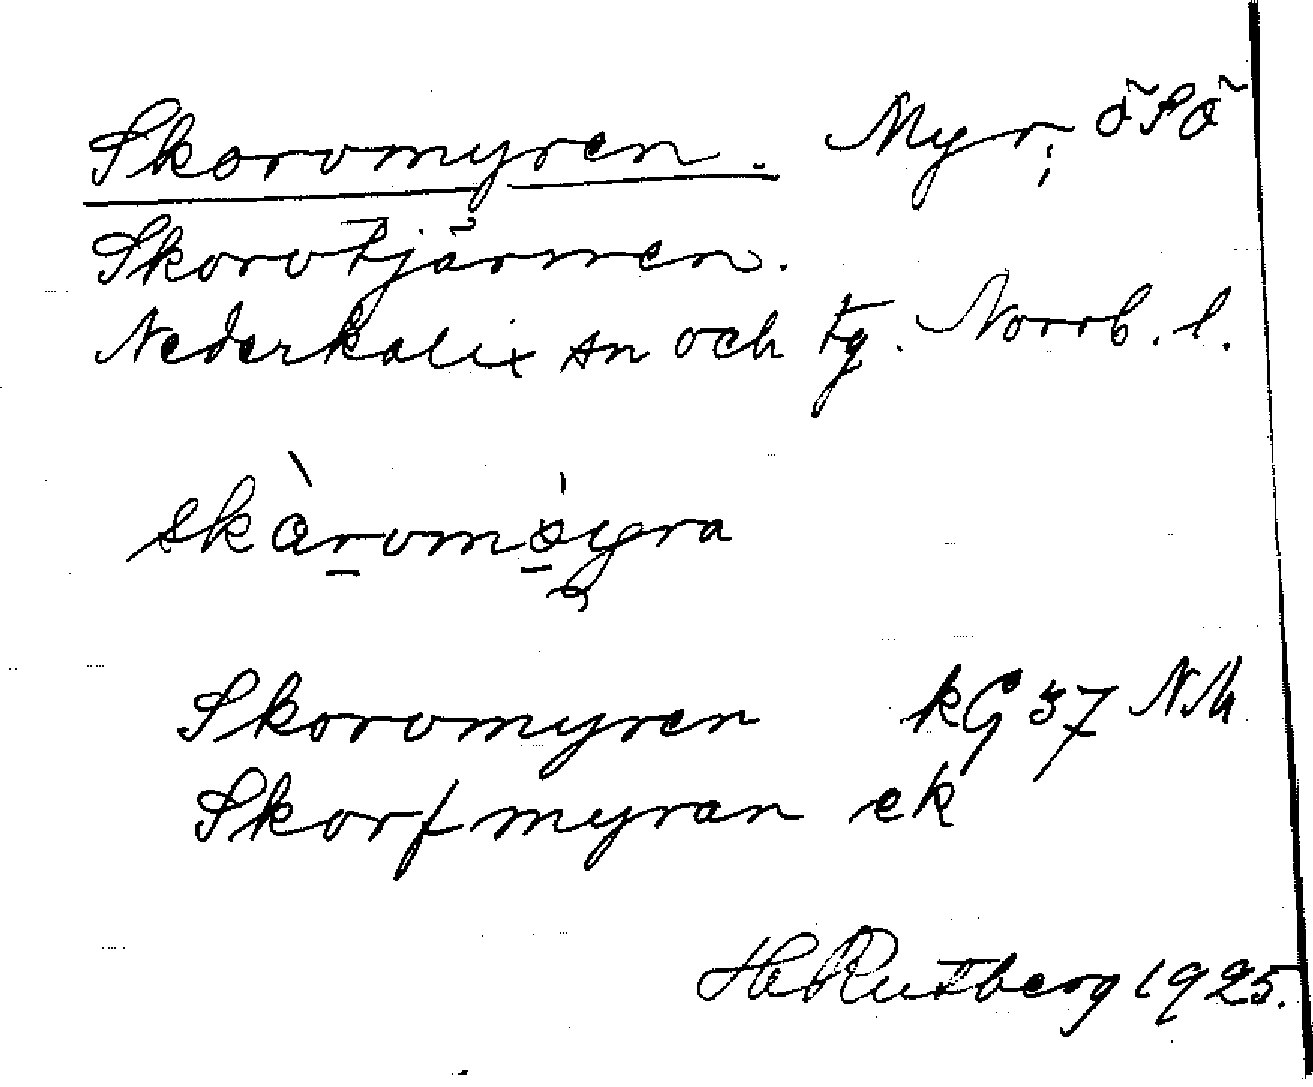 Skorvmyren. Myr; ö S ö
Skorvtjärnen.
Nederkalix sn och tg. Norrb. l.
Skorvmyren kG 37 NM
Skorfmyran ek
H Rutberg 1925.